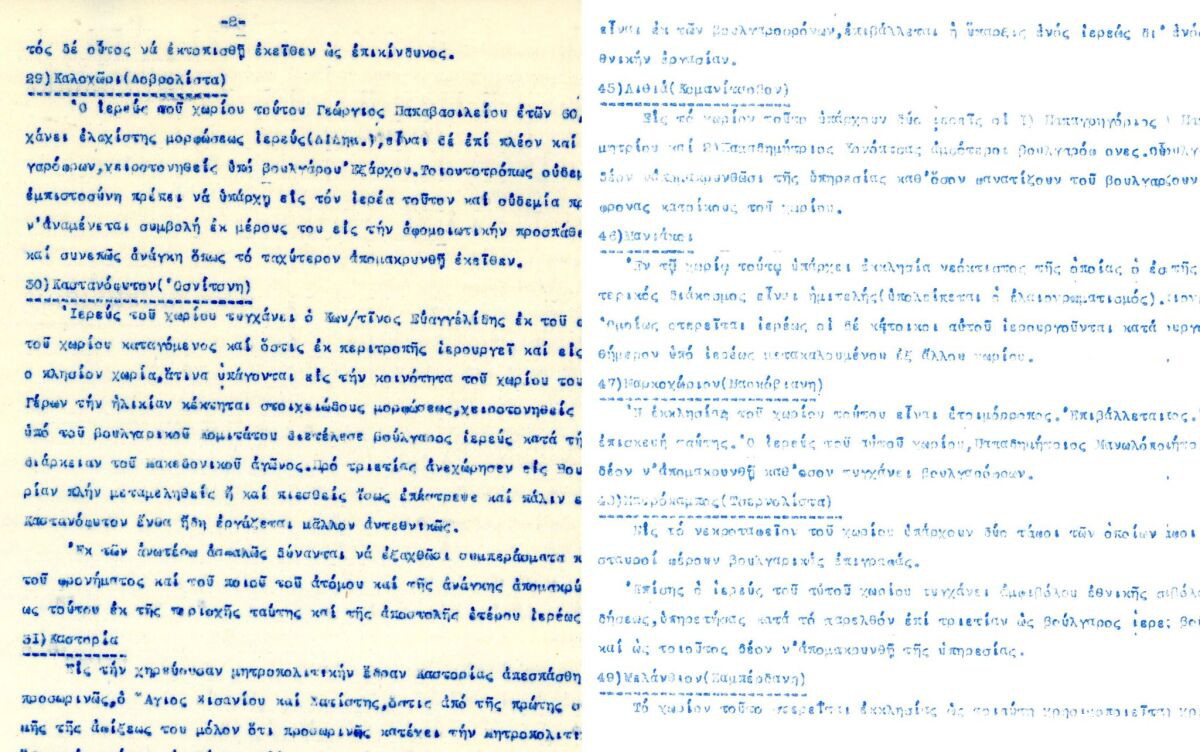 -8-
τός δέ οὗτος νά ἐκτοπισθῇ ἐκεῖθεν ὡς ἐπικίνδυνος.
29)Καλοχῶρι(Δοβρολίστα)
Ὁ ἱερεύς τοῦ χωρίου τούτου Γεώργιος Παπαβασιλείου ἐτῶν 60,
χάνει ἐλαχίστης μορφώσεως ἱερεύς εἶναι δέ ἐπί πλέον καί
γαρόφρων,χειροτονηθείς ὑπό βουλγάρου Ἐξάρχου.Τοιουτοτρόπως οὐδεμ
ἐμπιστοσύνη πρέπει νά ὑπάρχῃ εἰς τόν ἱερέα τοῦτον καί οὐδεμία πρ
ν'ἀναμένεται συμβολή ἐκ μέρους του εἰς τήν ἀφομοιωτικήν προσπάθε
καί συνεπῶς ἀνάγκη ὅπως τό ταχύτερον ἀπομακρυνθῇ ἐκεῖθεν.
30)Καστανόφυτον(Ὀσνίτσνη)
Ἱερεύς τοῦ χωρίου τυγχάνει ὁ Κων/τῖνος Εὐαγγελίδης ἐκ τοῦ
τοῦ χωρίου καταγόμενος καί ὅστις ἐκ περιτροπῆς ἱερουργεῖ καί εἰς
ο πλησίον χωρία,ἅτινα ὑπάγονται εἰς τήν κοινότητα τοῦ χωρίου του
Γέρων τήν ἡλικίαν κέκτηται στοιχειώδους μορφώσεως,χειροτονηθείς
ὑπό τοῦ βουλγαρικοῦ Κομιτάτου διετέλεσε βούλγαρος ἱερεύς κατά τή
διάρκειαν τοῦ Μακεδονικοῦ ἀγῶνος.Πρό τριετίας ἀνεχώρησεν εἰς Βου
ρίαν πλήν μεταμεληθείς ἤ καί πιεσθείς ἴσως ἐπέστρεψε καί πάλιν ε
Καστανόφυτον ἔνθα ἤδη ἐργάζεται μᾶλλον ἀντεθνικῶς.
Ἐκ τῶν ἀνωτέρω ἀσφαλῶς δύνανται νά ἐξαχθῶσι συμπεράσματα κ
τοῦ φρονήματος καί τοῦ ποιοῦ τοῦ ἀτόμου καί τῆς ἀνάγκης ἀπομακρύ
ως τούτου ἐκ τῆς περιοχῆς ταύτης καί τῆς ἀποστολῆς ἑτέρου ἱερέως
31)Καστορία
Εἰς τήν χηρεύουσαν μητροπολιτικήν ἕδραν Καστορίας ἀπεσπάσθη
προσωρινῶς,ὁ Ἅγιος Σισανίου καί Σατίστης,ὅστις ἀπό τῆς πρώτης σ
μῆς τῆς ἀφίξεώς του μόλον ὅτι προσωρινῶς κατέχει τήν μητροπολιτι
εἶναι ἐκ τῶν βουλγαροφρόνων,ἐπιβάλλεται ἡ ὕπαρξις ἑνός ἱερέως δι' ἐνός
θνικήν ἐργασίαν.
45)Λιθιά(Κομανίτσοβον)
Εἰς τό χωρίον τοῦτο ὑπάρχουν δύο ἱερεῖς οἱ 1) Παπαγρηγόριος
μητρίου καί 2)Παπαδημήτριος ἀμφότεροι
δέον ν'ἀπομακρυνθῶσι τῆς ὑπηρεσίας καθ'ὅσον φανατίζουν τοῦ
φρονας κατοίκους τοῦ χωρίου.
46)Μανιάκοι
Ἐν τῷ χωρίῳ τούτῳ ὑπάρχει ἐκκλησία νεόκτιστος τῆς ὁποίας ὁ
τερικός διάκοσμος εἶναι ἡμιτελής(ὑπολείπεται ὁ ἐλαιοχρωματισμός).
Ὁμοίως στερεῖται ἱερέως οἱ δέ κάτοικοι αὐτοῦ ἱερουργοῦνται κατά
θήμερον ὑπό ἱερέως μετακαλουμένου ἐξ ἄλλου χωρίου.
47)Μαρκοχώριον(Μαρκόβιανη)
Ἡ ἐκκλησία τοῦ χωρίου τούτου εἶναι ἑτοιμόρροπος.
ἐπισκευή ταύτης. Ὁ ἱερεύς τοῦ αὐτοῦ χωρίου,Παπαδημήτριος
δέον ν'ἀπομακρυνθῇ καθ'ὅσον τυγχάνει βουλγαρόφρων.
48)Μαυρόκαμπος(Τσερνολίστα)
Εἰς τό νεκροταφεῖον τοῦ χωρίου ὑπάρχουν δύο τάφοι τῶν ὁποίων
σταυροί φέρουν βουλγαρικάς ἐπιγραφάς.
Ἐπίσης ὁ ἱερεύς τοῦ αὐτοῦ χωρίου τυγχάνει ἀμφιβόλου ἐθνικῆς
δήσεως,ὑπηρετήσας κατά τό παρελθόν ἐπί τριετίαν ὡς βούλγαρος
καί ὡς τοιοῦτος δέον ν'ἀπομακρυνθῇ τῆς ὑπηρεσίας.
49)Μελάνθιον(Ζαμπέρδανη)
Τό χωρίον τοῦτο στερεῖται ἐκκλησίας ὡς τοιαύτη χρησιμοποιεῖται